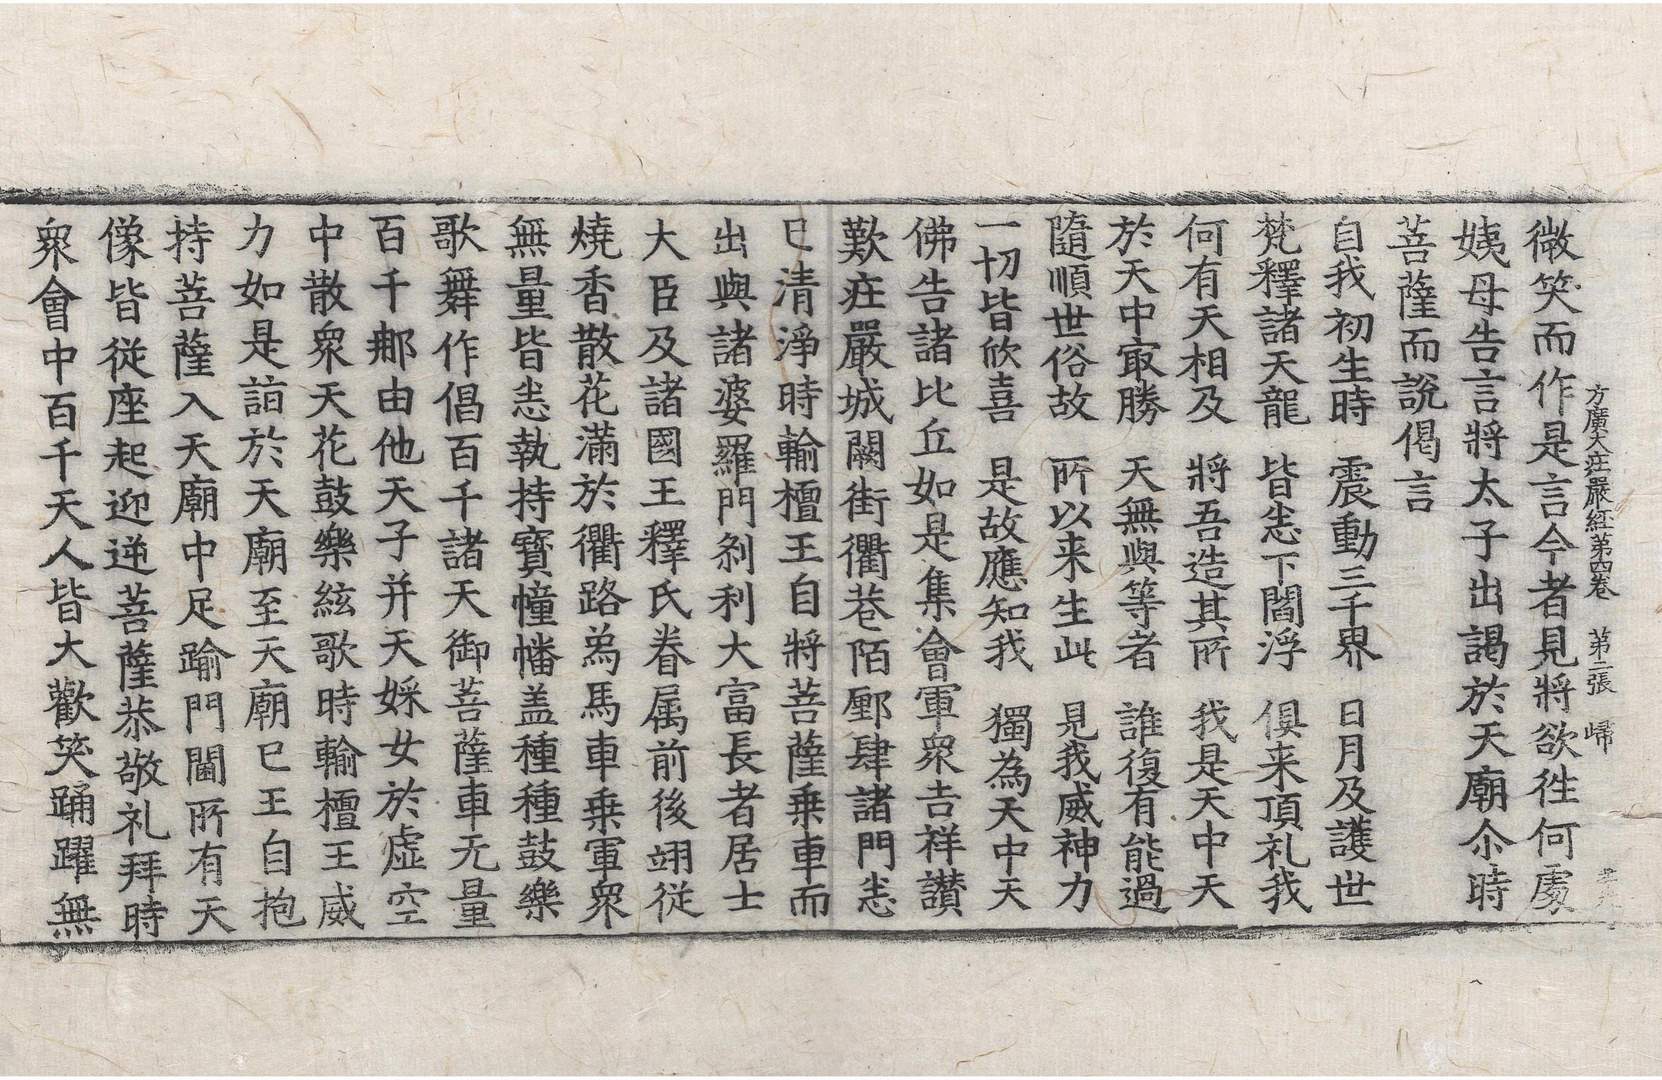 方廣大莊嚴經第四卷　第二張　歸
微笑而作是言今者見將欲往何處
姨母告言將太子出謁於天廟尒時
菩薩而說偈言
自我初生時　震動三千界　日月及護世
梵釋諸天龍　皆悉下閻浮　俱来頂礼我
何有天相及　將吾造其所　我是天中天
於天中㝡勝　天無與等者　誰復有能過
隨順世俗故　所以来生此　見我威神力
一切皆欣喜　是故應知我　獨為天中天
佛告諸比丘如是集會軍衆吉祥讃
歎莊嚴城闕街衢巷陌郾肆諸門悉
已清淨時輸檀王自將菩薩乗車而
出與諸婆羅門剎利大富長者居士
大臣及諸國王釋氏眷属前後翊從
燒香散花滿於衢路爲馬車乗軍衆
無量皆悉執持寶幢幡盖種種鼓樂
歌舞作倡百千諸天御菩薩車无量
百千那由他天子并天婇女於虛空
中散衆天花鼓樂絃歌時輸檀王威
力如是詣於天廟至天廟已王自抱
持菩薩入天廟中足踰門閫所有天
像皆從座起迎逆菩薩恭敬礼拜時
衆會中百千天人皆大歡笑踊躍無